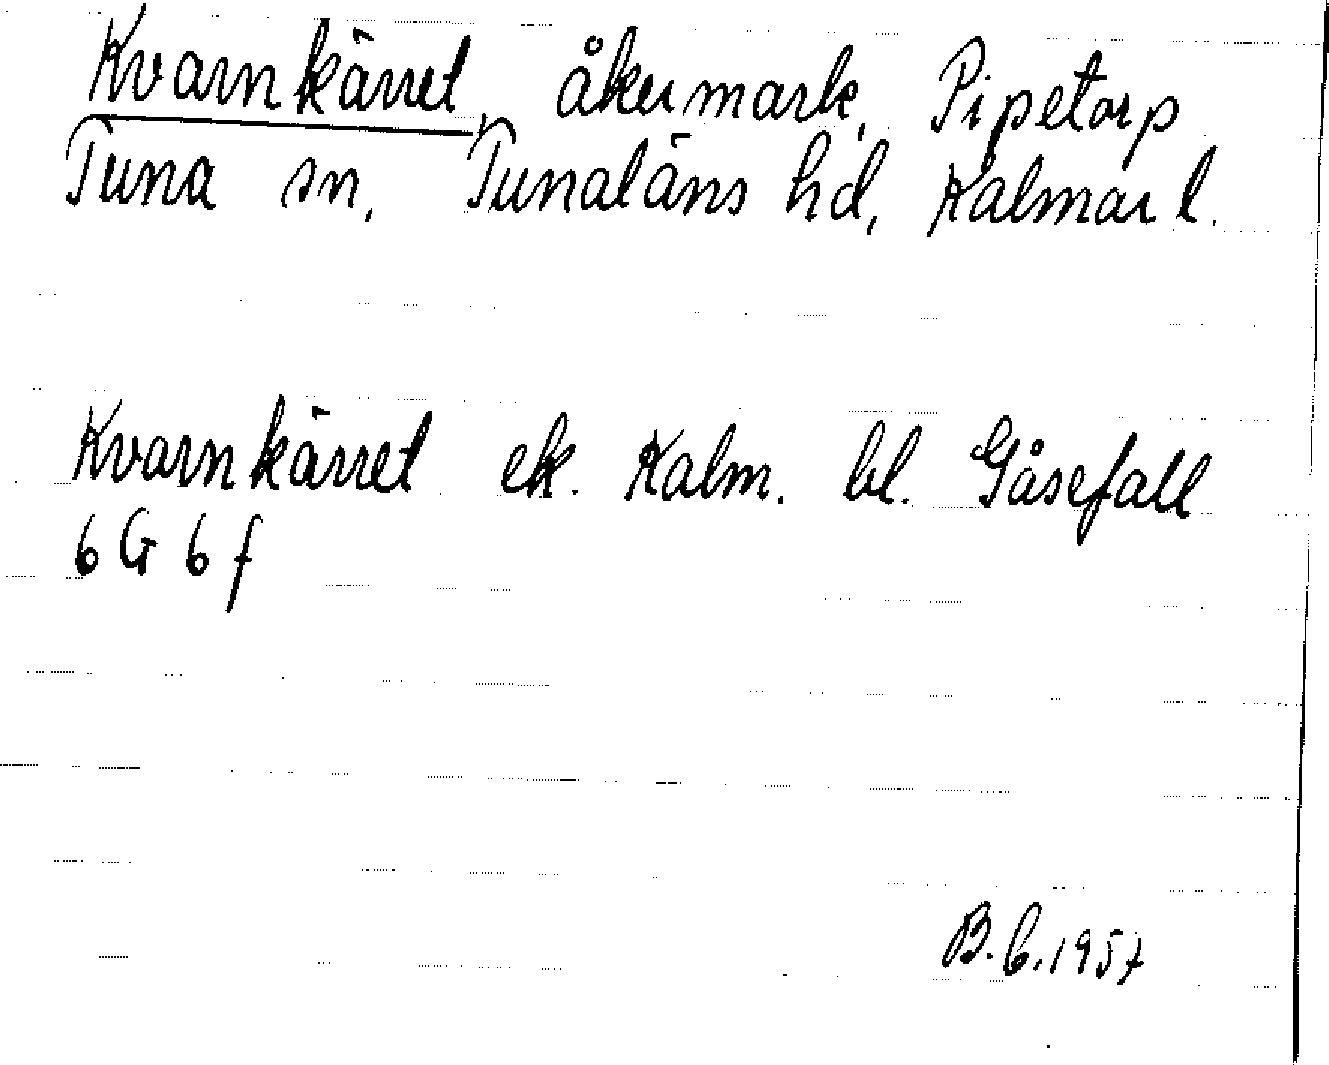 Kvarnkärret, åkermark, Pipetorp
Tuna sn, Tunaläns hd, Kalmar l.
Kvarnkärret ek. Kalm. bl. Gåsefall
6 G 6 f
B. C. 1957